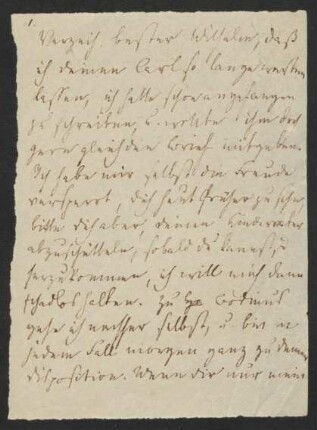 1.
Verzeih bester Wilhelm, daß
ich deinen Carl so lange warten
lassen, ich hatte schon angefangen
zu schreiben, u. wollte ihm doch
gern gleich den Brief mitgeben.
Ich habe mir selbst die Freude
versperrt, dich heut früher zu sehn,
bitte dich aber, deinen
abzuschütteln, sobald du kannst, u
herzukommen, ich will mich dann
schadlos halten. Zu Bodinus
gehe ich nachher selbst, u. bin in
jedem Fall morgen ganz zu deiner
Disposition. Wenn dir nur mein